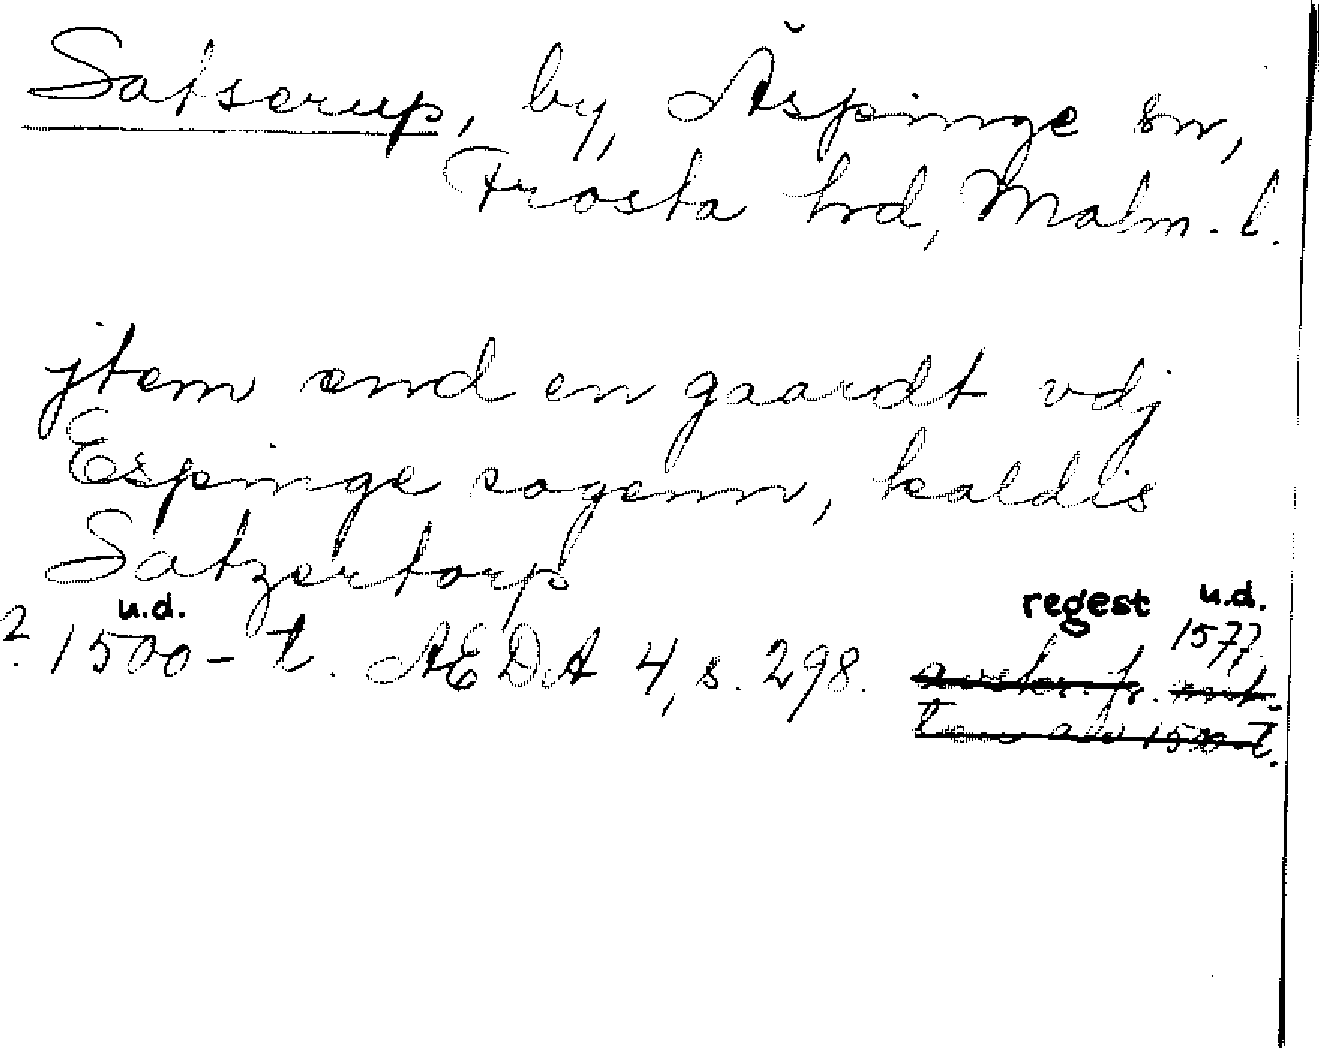 Satserup, by, Äspinge sn,
Frosta hrd, Malm. l.
jtem end en gaardt vdj
Espinge sogenn, kaldis
Satzertorp
u.d. regest u.d.
? 1500-t. AEDA 4, s. 298. 1577,
avskr. fr. mit-
ten av 1500-t.